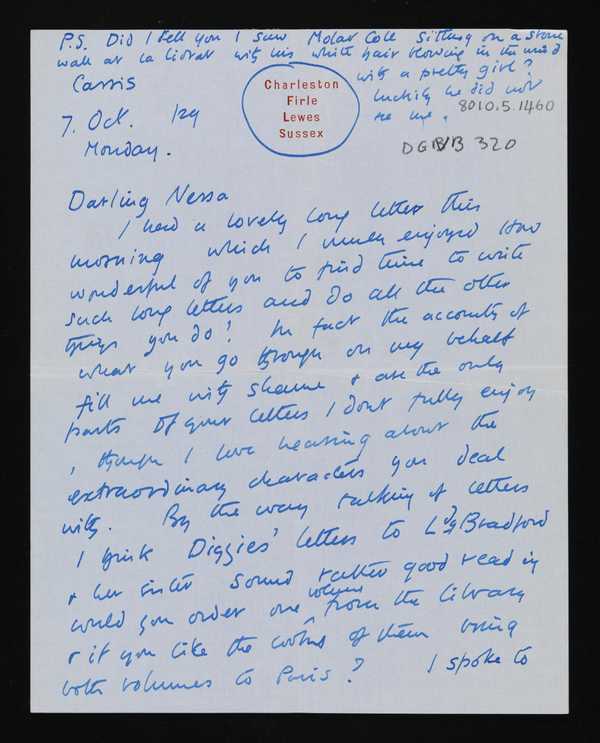 P.S. Did I tell you I saw Molar Cole sitting on a stone
wall at La Ciotat with his white hair blowing in the wind
with a pretty girl?
luckily he did not
see me.
Cassis
Charleston
Firle
Lewes
Sussex
8010.5.1460
7. Oct. /29
Monday.
DGB/B 320
Darling Nessa
I had a lovely long letter this
morning which I much enjoyed How
wonderful of you to find time to write
such long letters and do all the other
things you do! In fact the accounts of
what you go through on my behalf
fill me with shame & are the only
parts of your letters I dont fully enjoy
, though I love hearing about the
extraordinary characters you deal
with. By the way talking of letters
I think Diggies' letters to Ldy Bradford
& her sister sound rather good reading
would you order one volume from the library
& if you like the looks of them bring
both volumes to Paris? I spoke to